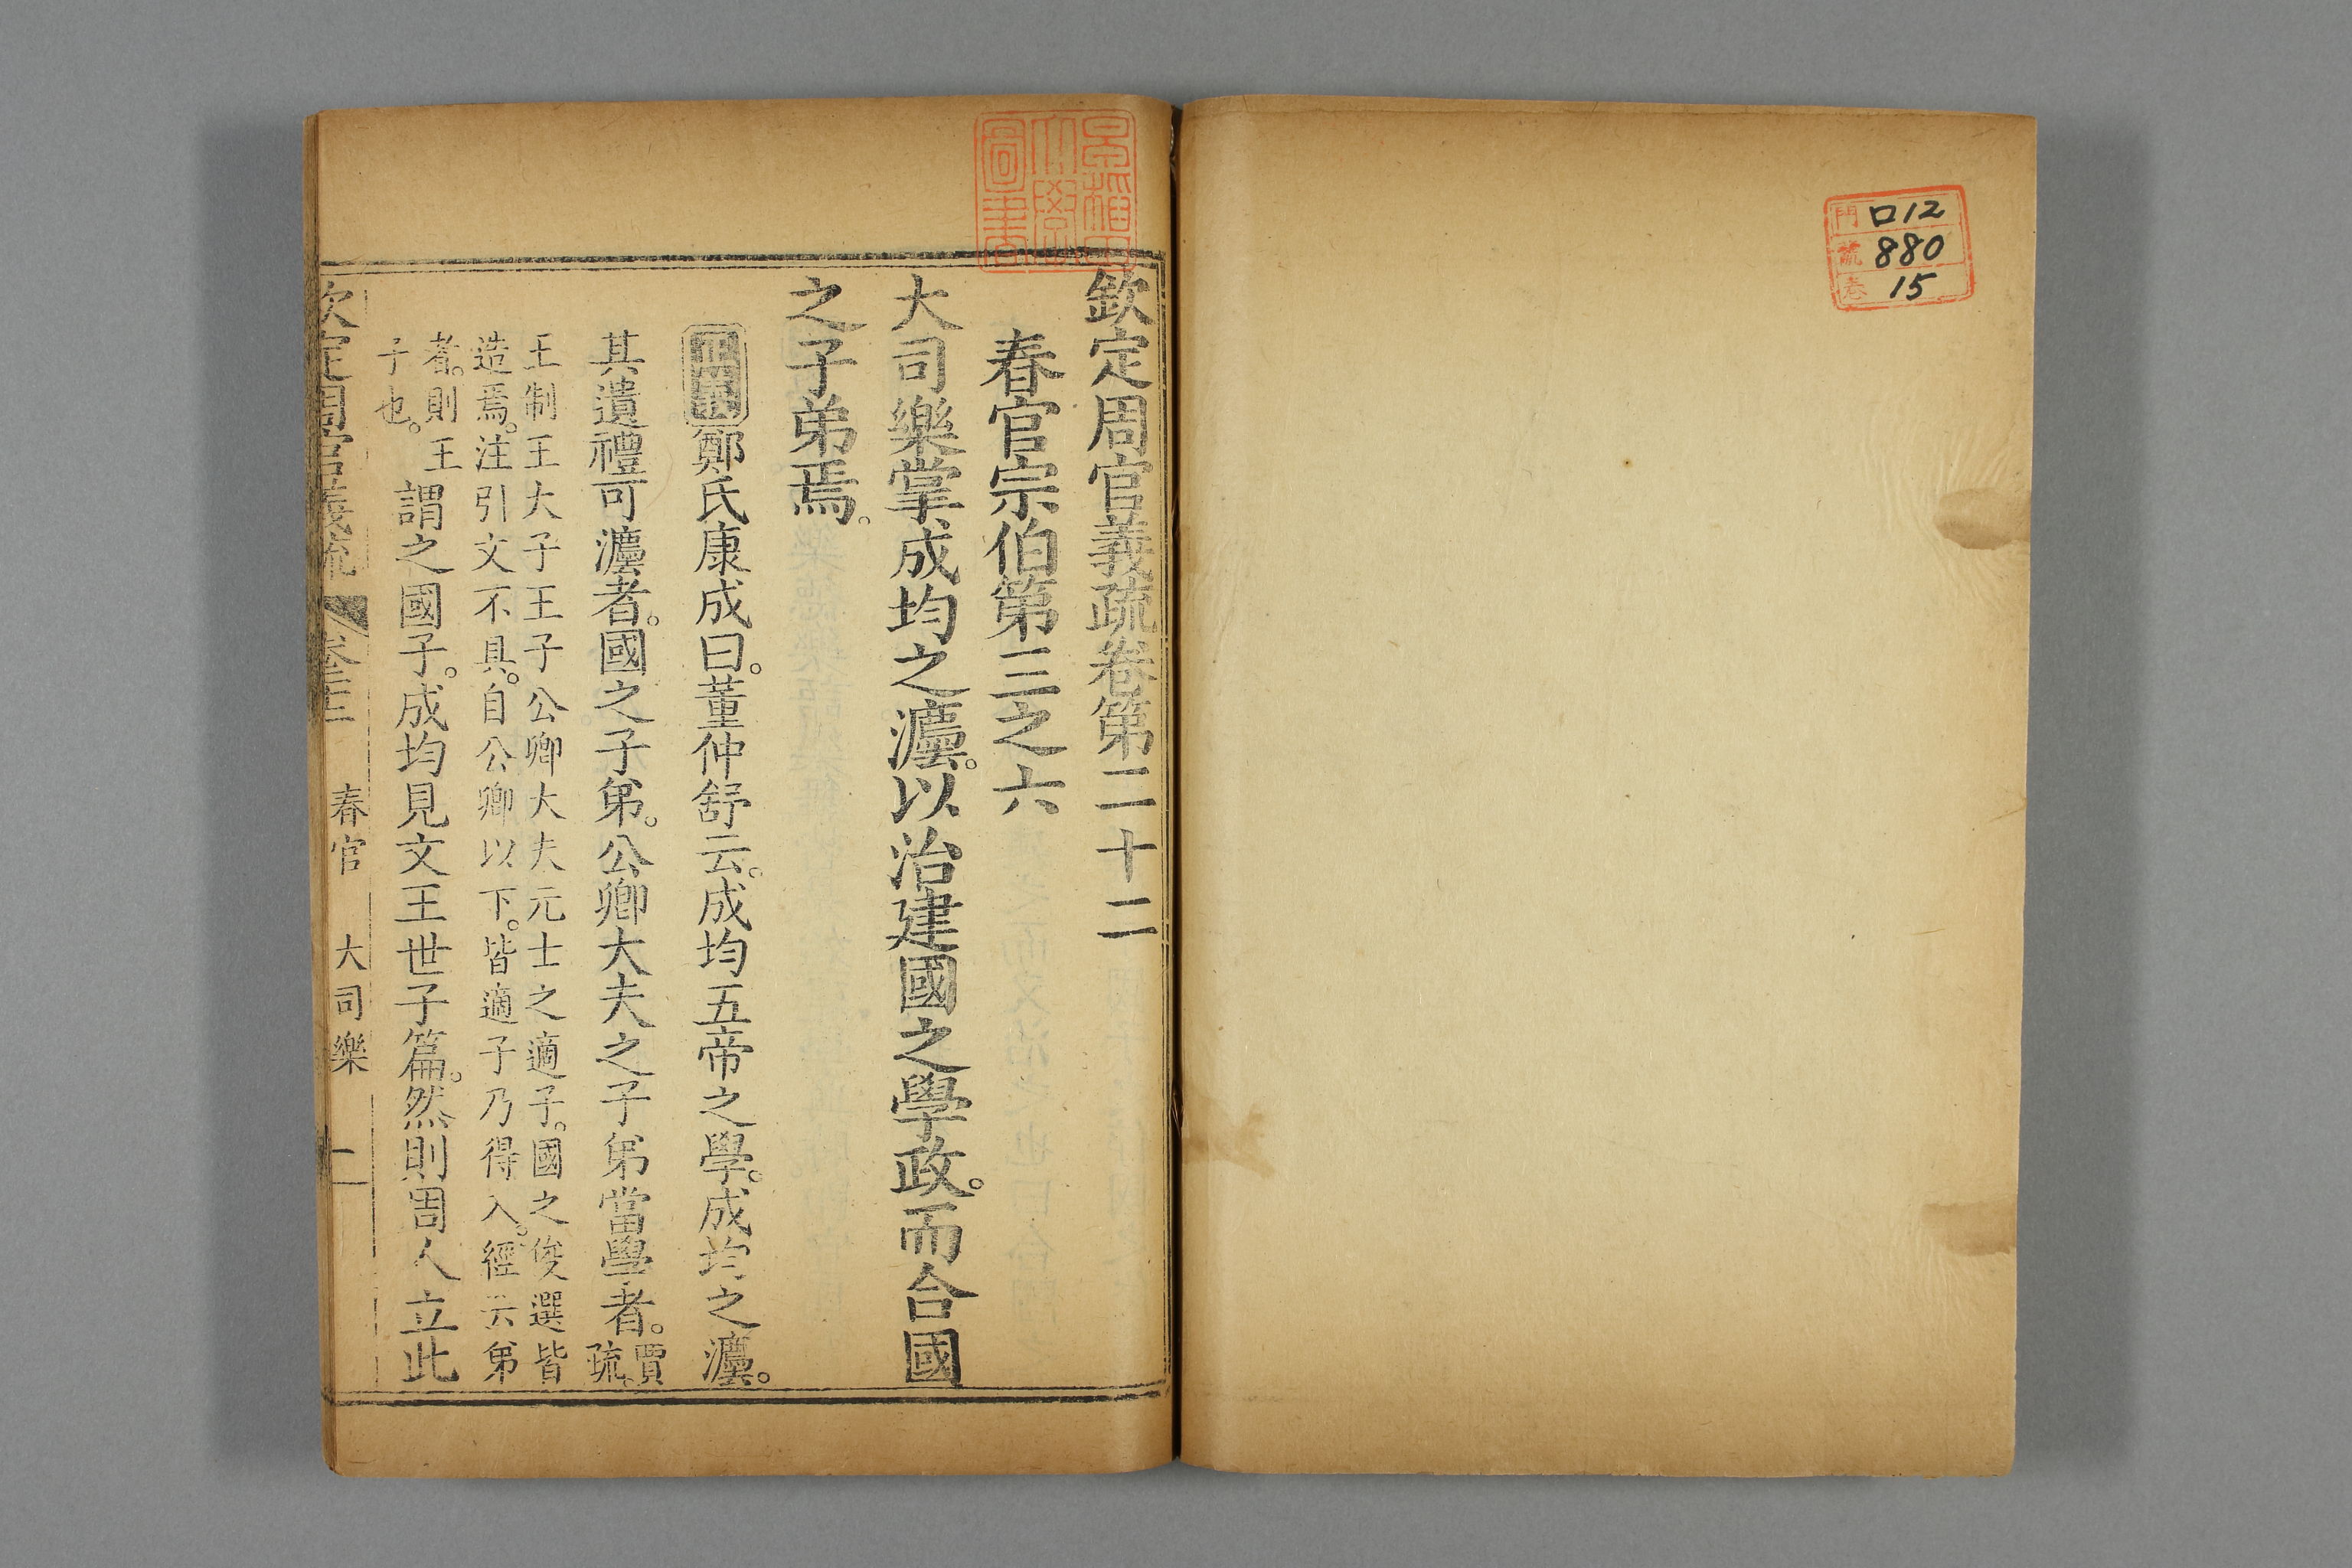 門 ロ12
號 880
卷 15
欽定周官義疏卷第二十二
春官宗伯第三之六
大司樂掌成均之灋。以治建國之學政。而合國
之子弟焉。
正義鄭氏康成曰。董仲舒云。成均五帝之學。成均之灋。
其遺禮可灋者。國之子弟。公卿大夫之子弟當學者。賈
疏。
王制王大子王子公卿大夫元士之適子。國之俊選皆
造焉。注引文不具。自公卿以下。皆適子乃得入。經云弟
者。則王
子也。
謂之國子。成均見文王世子篇。然則周人立此
欽定周官義疏 卷二十二 春官 大司樂 一